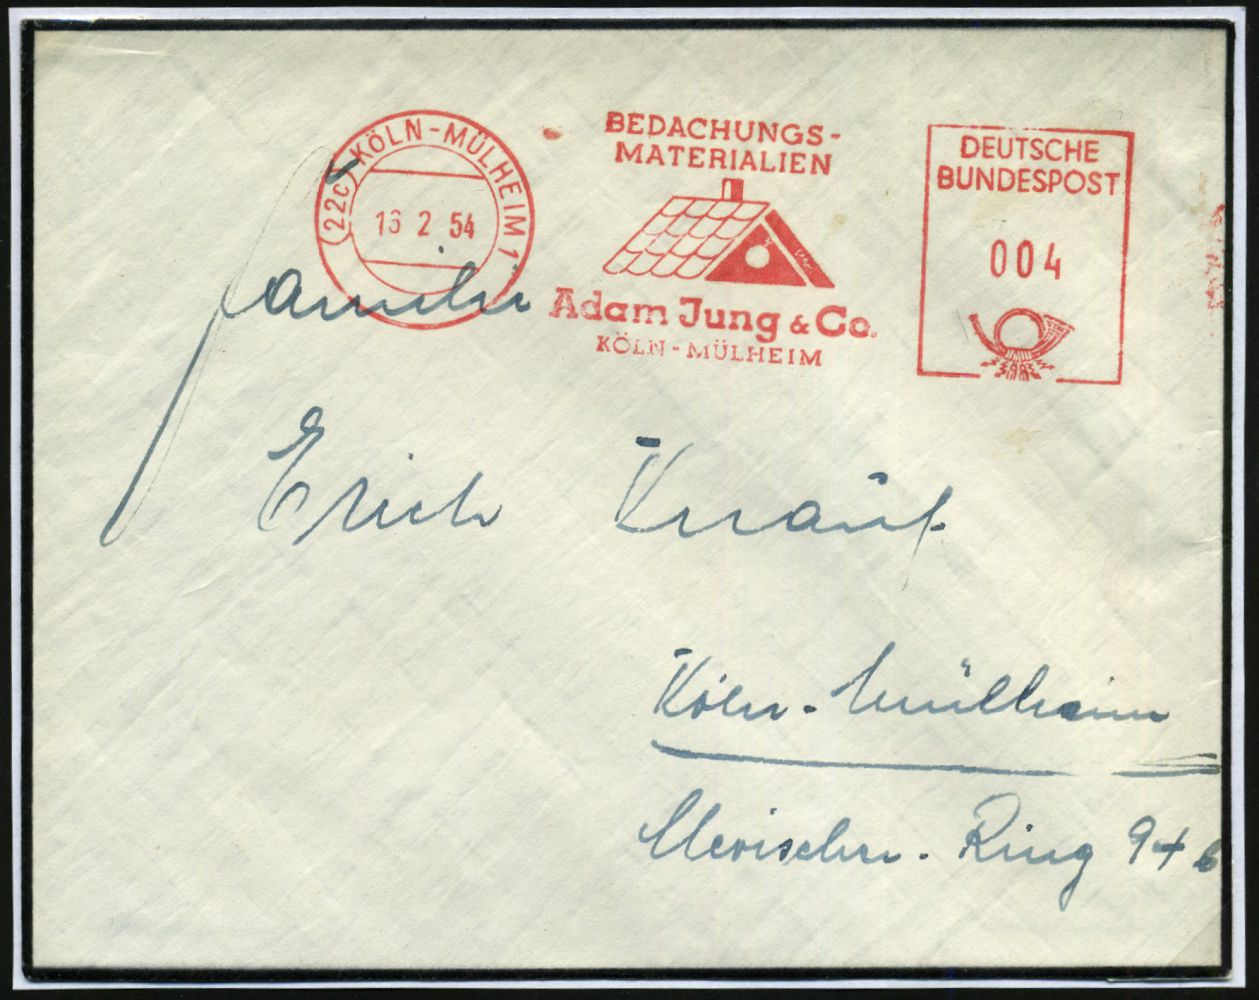 (22c) KÖLN-MÜLHEIM 1
13 2 54
BEDACHUNGS-
MATERIALIEN
Adam Jung & Co.
KÖLN-MÜLHEIM
DEUTSCHE
BUNDESPOST
004
Familie
Erich Knauf
Köln-Mülheim
Ring 94 b